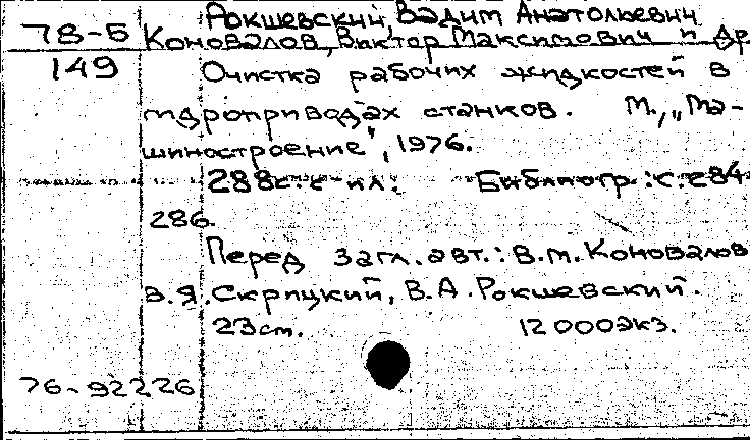 Рокшевский, Вадим Анатольевич
78-5 Коновалов, Виктор Максимович и др
149 Очистка рабочих жидкостей в
гидроприводах станков. М., „Ма-
шиностроение", 1976.
288с. с ил. Библиогр.: с. 284
286.
Перед загл. авт.: В.М. Коновалов
В.Я. Скрицкий, В.А. Рокшевский.
23см. 12 000экз.
76-92226